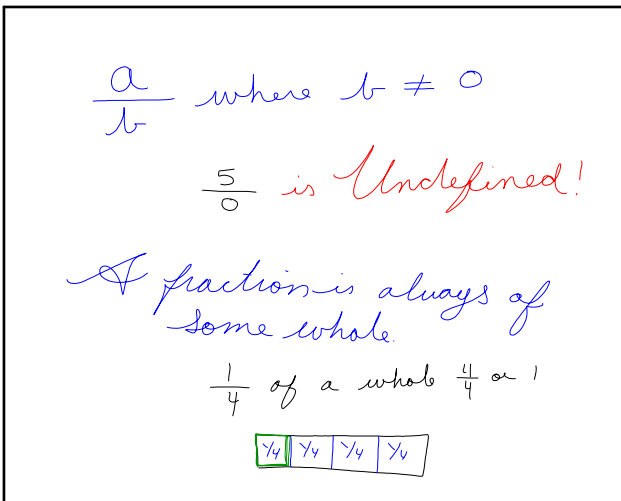 a/b where b ≠ 0
5/0 is Undefined!
A fraction is always of
some whole.
1/4 of a whole 4/4 or 1
1/4 1/4 1/4 1/4